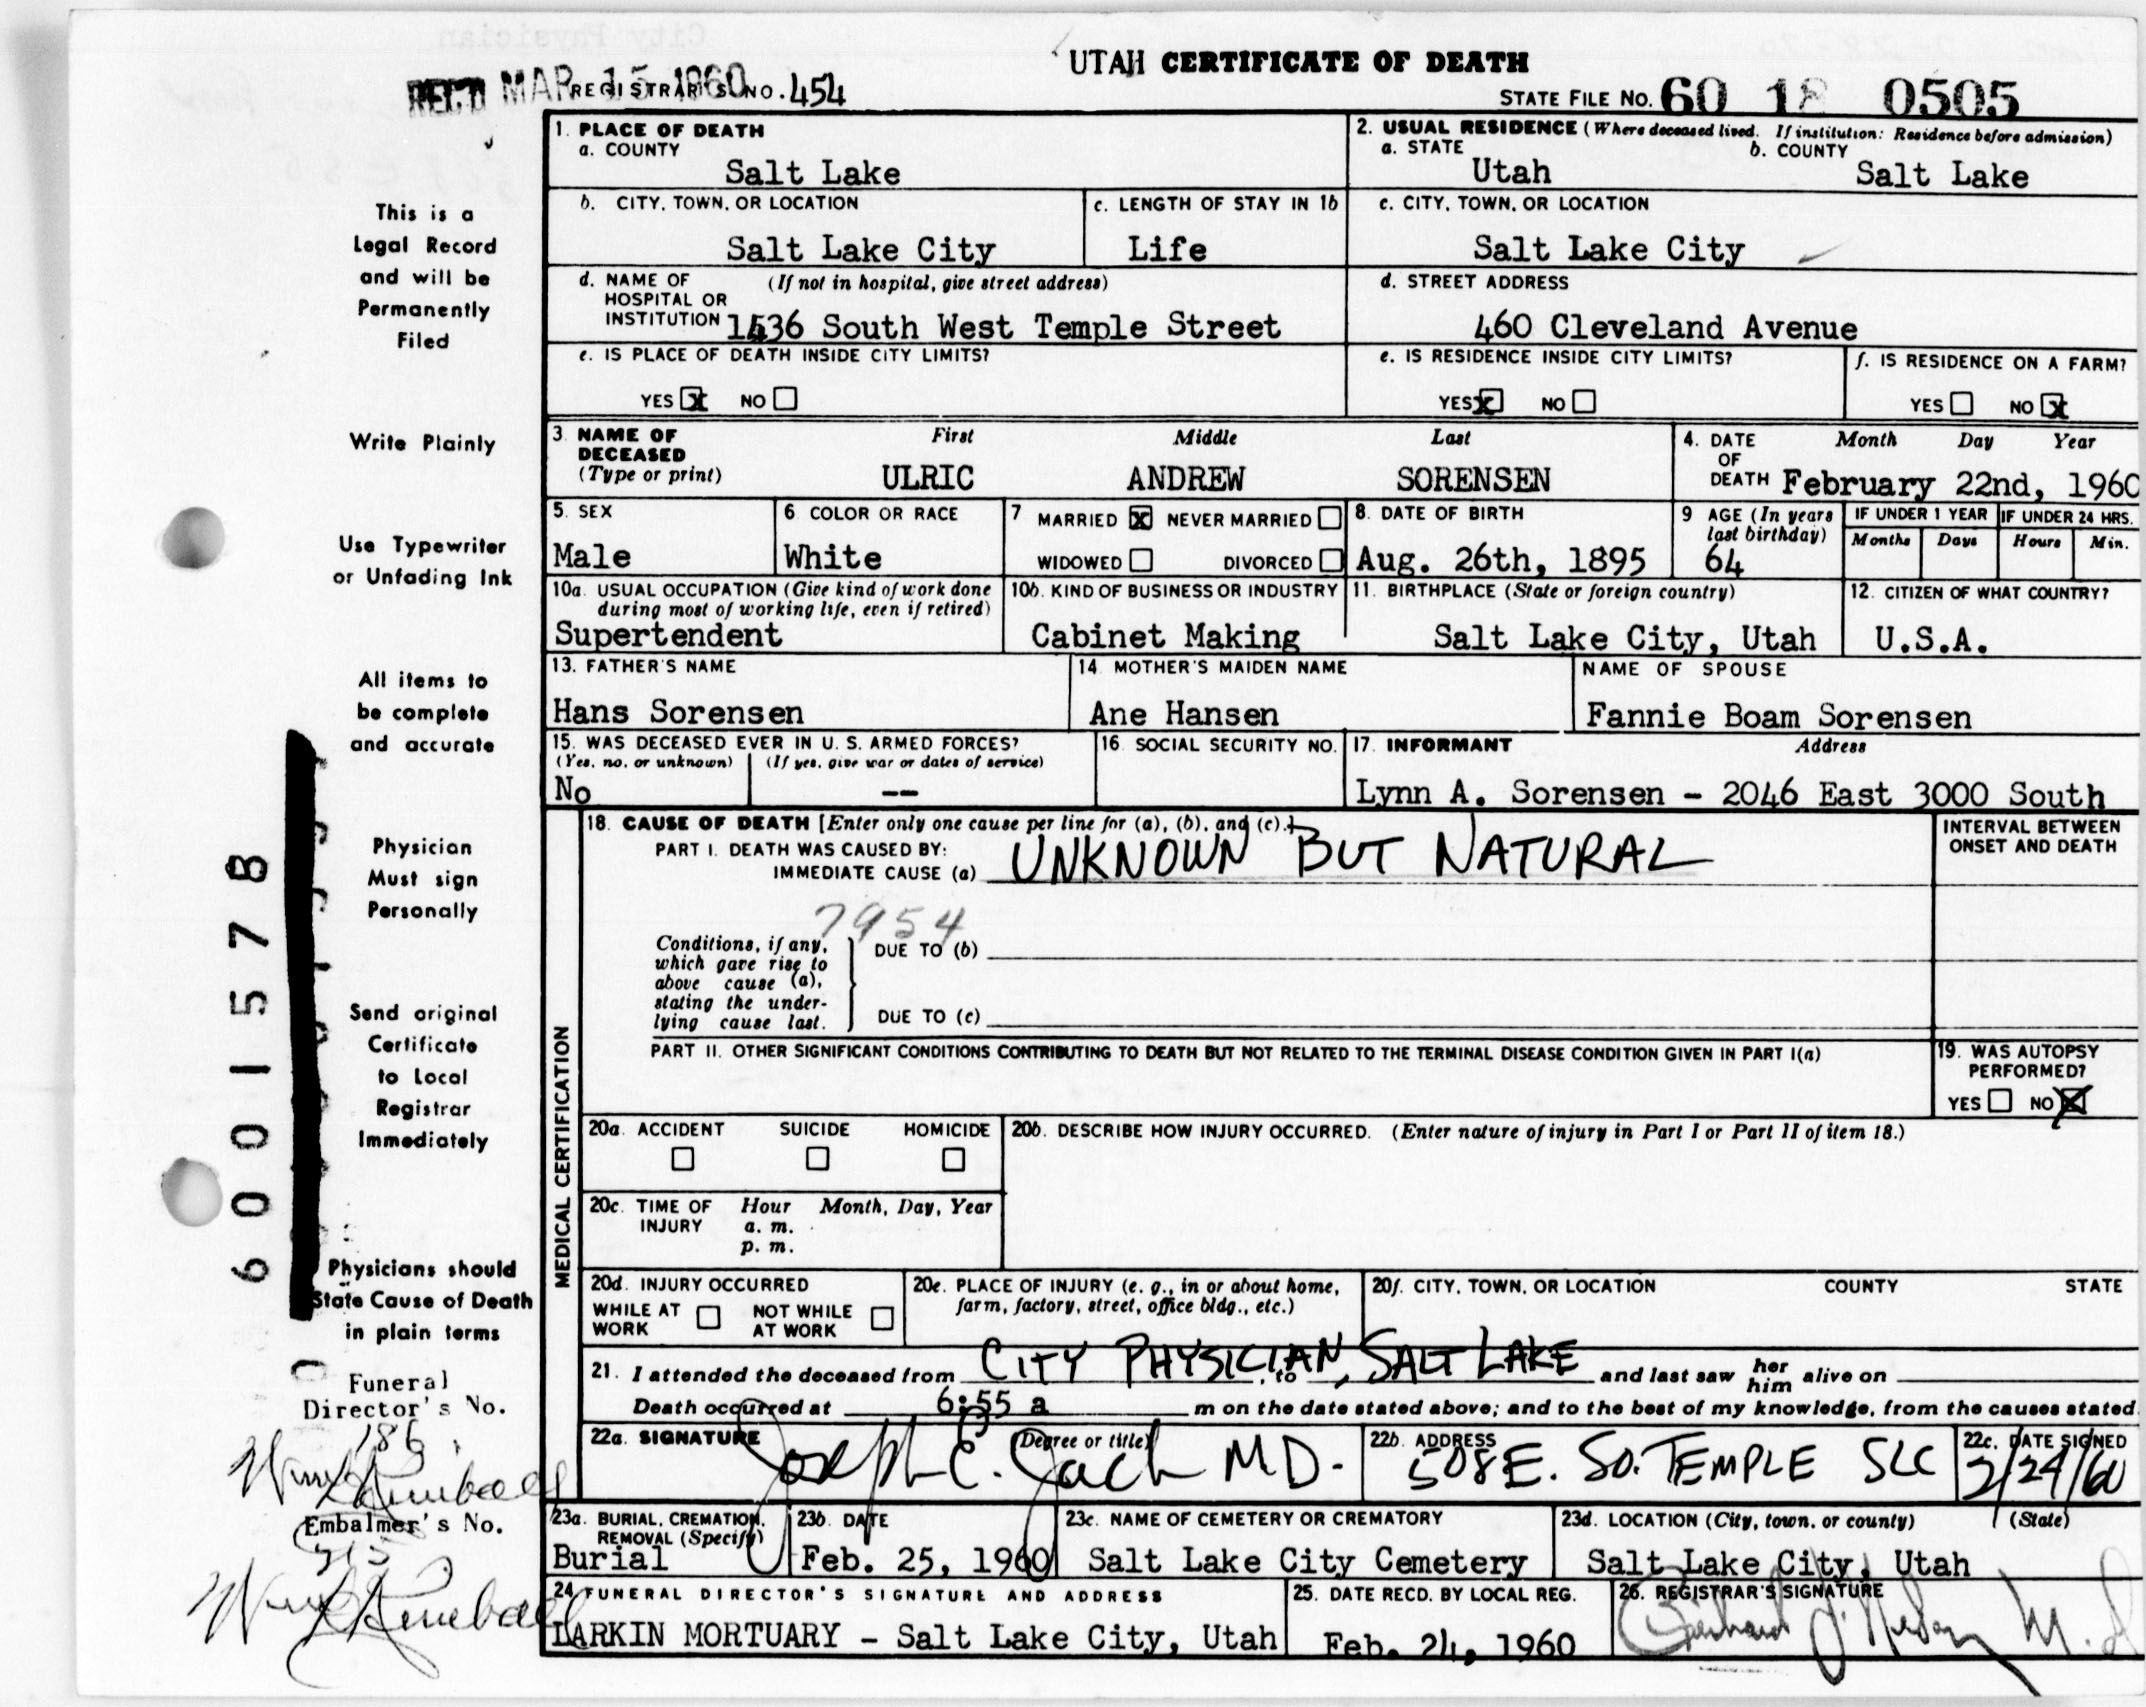 UTAH CERTIFICATE OF DEATH
REC'D MAR 15 1960 REGISTRAR'S NO. 454
STATE FILE NO. 60 18 0505
1. PLACE OF DEATH
a. COUNTY
Salt Lake
2. USUAL RESIDENCE (Where deceased lived. If institution: Residence before admission)
a. STATE
Utah
b. COUNTY
Salt Lake
b. CITY, TOWN, OR LOCATION
Salt Lake City
c. LENGTH OF STAY IN 1b
Life
c. CITY, TOWN, OR LOCATION
Salt Lake City
d. NAME OF (If not in hospital, give street address)
HOSPITAL OR
INSTITUTION 1536 South West Temple Street
d. STREET ADDRESS
460 Cleveland Avenue
e. IS PLACE OF DEATH INSIDE CITY LIMITS?
YES X NO
e. IS RESIDENCE INSIDE CITY LIMITS?
YES X NO
f. IS RESIDENCE ON A FARM?
YES NO X
3. NAME OF DECEASED
(Type or print)
First Middle Last
ULRIC ANDREW SORENSEN
4. DATE OF DEATH
Month Day Year
February 22nd, 1960
5. SEX
Male
6 COLOR OR RACE
White
7 MARRIED X NEVER MARRIED
WIDOWED DIVORCED
8. DATE OF BIRTH
Aug. 26th, 1895
9 AGE (In years
last birthday)
64
IF UNDER 1 YEAR
Months Days
IF UNDER 24 HRS.
Hours Min.
10a. USUAL OCCUPATION (Give kind of work done
during most of working life, even if retired)
Supertendent
10b. KIND OF BUSINESS OR INDUSTRY
Cabinet Making
11. BIRTHPLACE (State or foreign country)
Salt Lake City, Utah
12. CITIZEN OF WHAT COUNTRY?
U.S.A.
13. FATHER'S NAME
Hans Sorensen
14 MOTHER'S MAIDEN NAME
Ane Hansen
NAME OF SPOUSE
Fannie Boam Sorensen
15. WAS DECEASED EVER IN U. S. ARMED FORCES?
(Yes, no, or unknown) (If yes, give war or dates of service)
No --
16. SOCIAL SECURITY NO.
17. INFORMANT Address
Lynn A. Sorensen - 2046 East 3000 South
MEDICAL CERTIFICATION
18. CAUSE OF DEATH [Enter only one cause per line for (a), (b), and (c).]
PART I. DEATH WAS CAUSED BY:
IMMEDIATE CAUSE (a) UNKNOWN BUT NATURAL
INTERVAL BETWEEN
ONSET AND DEATH
7954
Conditions, if any,
which gave rise to
above cause (a),
stating the under-
lying cause last.
DUE TO (b)
DUE TO (c)
PART II. OTHER SIGNIFICANT CONDITIONS CONTRIBUTING TO DEATH BUT NOT RELATED TO THE TERMINAL DISEASE CONDITION GIVEN IN PART I(a)
19. WAS AUTOPSY
PERFORMED?
YES NO X
20a. ACCIDENT SUICIDE HOMICIDE
20b. DESCRIBE HOW INJURY OCCURRED. (Enter nature of injury in Part I or Part II of item 18.)
20c. TIME OF INJURY
Hour Month, Day, Year
a. m.
p. m.
20d. INJURY OCCURRED
WHILE AT WORK NOT WHILE AT WORK
20e. PLACE OF INJURY (e. g., in or about home,
farm, factory, street, office bldg., etc.)
20f. CITY, TOWN, OR LOCATION COUNTY STATE
21. I attended the deceased from CITY PHYSICIAN, to SALT LAKE and last saw her him alive on
Death occurred at 6:55 a m on the date stated above; and to the best of my knowledge, from the causes stated.
22a. SIGNATURE (Degree or title)
Joseph C. Jack MD.
22b. ADDRESS
508 E. SO. TEMPLE SLC
22c. DATE SIGNED
2/24/60
23a. BURIAL, CREMATION,
REMOVAL (Specify)
Burial
23b. DATE
Feb. 25, 1960
23c. NAME OF CEMETERY OR CREMATORY
Salt Lake City Cemetery
23d. LOCATION (City, town, or county) (State)
Salt Lake City, Utah
24. FUNERAL DIRECTOR'S SIGNATURE AND ADDRESS
LARKIN MORTUARY - Salt Lake City, Utah
25. DATE RECD. BY LOCAL REG.
Feb. 24, 1960
26. REGISTRAR'S SIGNATURE
This is a
Legal Record
and will be
Permanently
Filed
Write Plainly
Use Typewriter
or Unfading Ink
All items to
be complete
and accurate
Physician
Must sign
Personally
Send original
Certificate
to Local
Registrar
Immediately
Physicians should
State Cause of Death
in plain terms
Funeral
Director's No.
186
Embalmer's No.
6001578